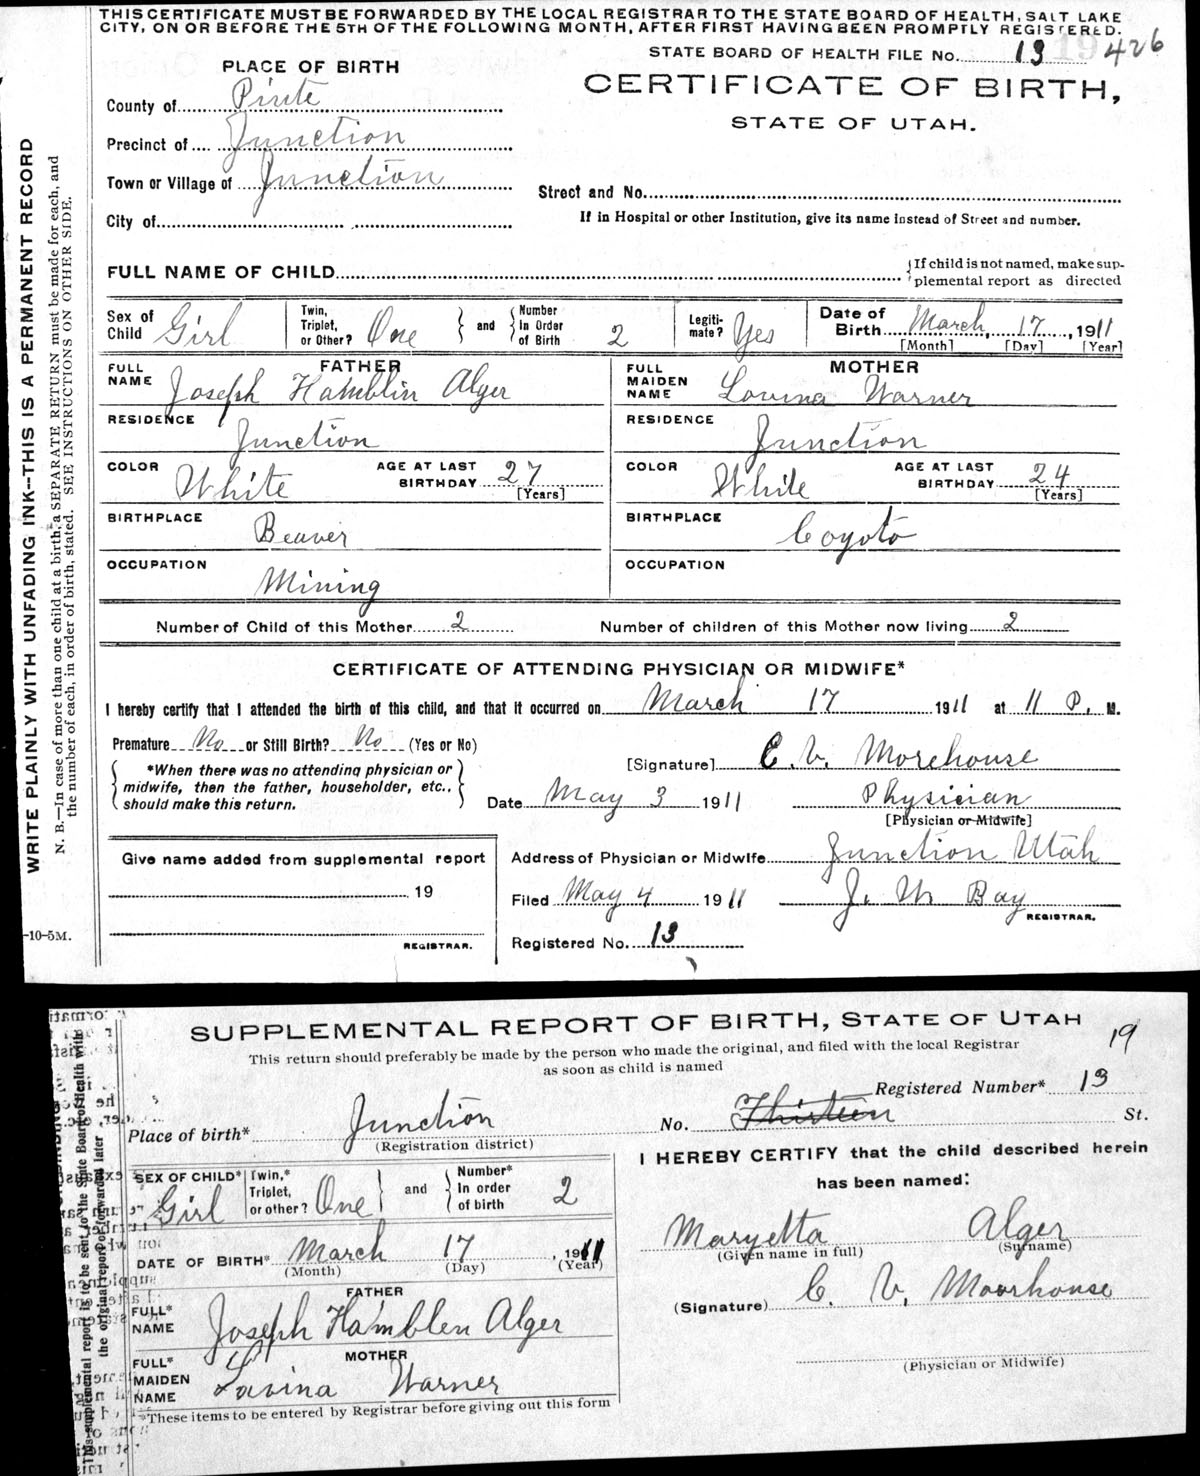 THIS CERTIFICATE MUST BE FORWARDED BY THE LOCAL REGISTRAR TO THE STATE BOARD OF HEALTH, SALT LAKE
CITY, ON OR BEFORE THE 5TH OF THE FOLLOWING MONTH, AFTER FIRST HAVING BEEN PROMPTLY REGISTERED.
STATE BOARD OF HEALTH FILE No. 13 19 426
PLACE OF BIRTH
CERTIFICATE OF BIRTH,
STATE OF UTAH.
County of Piute
Precinct of Junction
Town or Village of Junction
Street and No.
City of
If in Hospital or other Institution, give its name instead of Street and number.
FULL NAME OF CHILD
{If child is not named, make sup-
plemental report as directed
Sex of Child Girl
Twin, Triplet, or Other? One } and { Number In Order of Birth 2
Legiti-mate? Yes
Date of Birth March, 17, 1911
[Month] [Day] [Year]
FATHER
FULL NAME Joseph Hamblin Alger
MOTHER
FULL MAIDEN NAME Lovina Warner
RESIDENCE Junction
RESIDENCE Junction
COLOR White AGE AT LAST BIRTHDAY 27 [Years]
COLOR White AGE AT LAST BIRTHDAY 24 [Years]
BIRTHPLACE Beaver
BIRTHPLACE Coyoto
OCCUPATION Mining
OCCUPATION
Number of Child of this Mother 2 Number of children of this Mother now living 2
CERTIFICATE OF ATTENDING PHYSICIAN OR MIDWIFE*
I hereby certify that I attended the birth of this child, and that it occurred on March 17 1911 at 11 P. M.
Premature No or Still Birth? No (Yes or No)
{*When there was no attending physician or
midwife, then the father, householder, etc.,
should make this return.}
[Signature] C. V. Morehouse
Date May 3 1911 Physician
[Physician or Midwife]
Give name added from supplemental report
19
REGISTRAR.
Address of Physician or Midwife Junction Utah
Filed May 4 1911 J. W. Bay
REGISTRAR.
Registered No. 13
WRITE PLAINLY WITH UNFADING INK--THIS IS A PERMANENT RECORD
N. B.—In case of more than one child at a birth, a SEPARATE RETURN must be made for each, and
the number of each, in order of birth, stated. SEE INSTRUCTIONS ON OTHER SIDE.
-10-5M.
SUPPLEMENTAL REPORT OF BIRTH, STATE OF UTAH
19
This return should preferably be made by the person who made the original, and filed with the local Registrar
as soon as child is named
Registered Number* 13
Place of birth* Junction
(Registration district)
No. Thirteen St.
SEX OF CHILD* Girl
Twin,* Triplet, or other? One } and { Number* In order of birth 2
DATE OF BIRTH* March 17, 1911
(Month) (Day) (Year)
FATHER
FULL* NAME Joseph Hamblen Alger
MOTHER
FULL* MAIDEN NAME Lavina Warner
*These items to be entered by Registrar before giving out this form
I HEREBY CERTIFY that the child described herein
has been named:
Maryetta Alger
(Given name in full) (Surname)
(Signature) C. V. Moorhouse
(Physician or Midwife)
This supplemental report is to be sent to the State Board of Health with
the original report or forwarded later